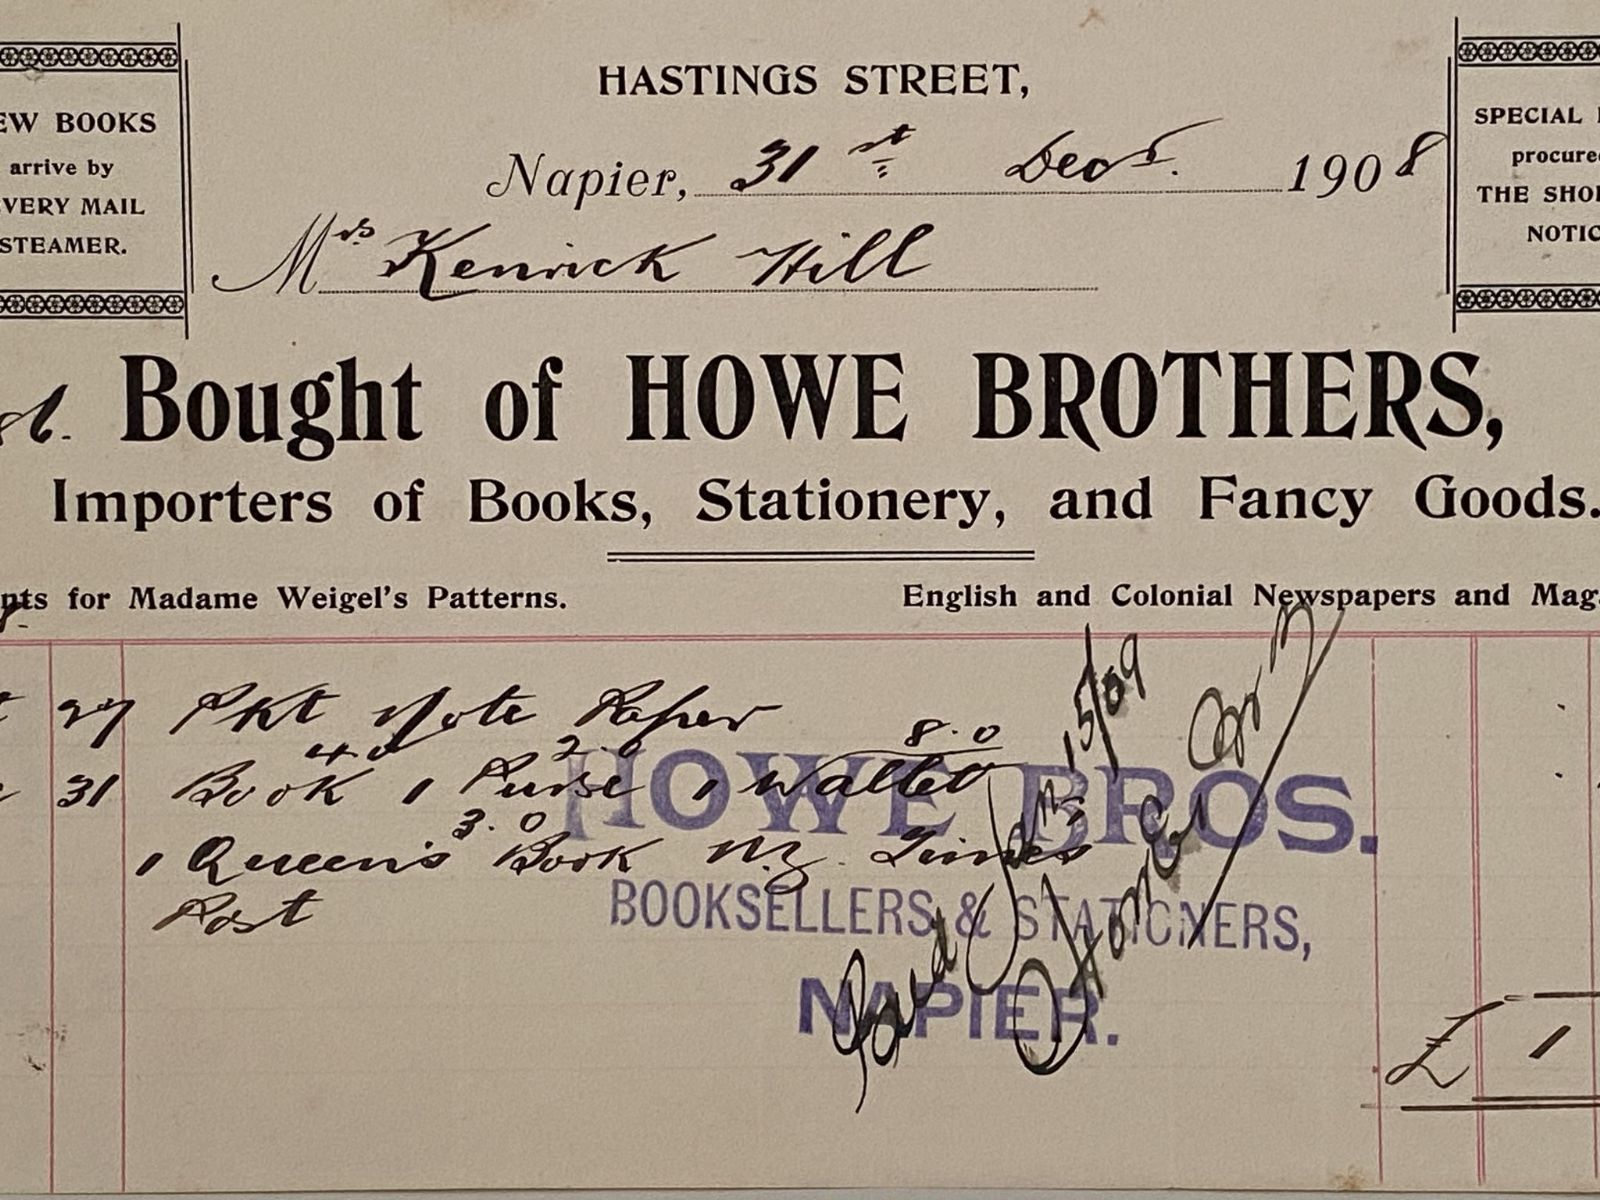 EW BOOKS
arrive by
VERY MAIL
STEAMER.
HASTINGS STREET,
Napier, 31st Decr. 1908
Mrs Kenrick Hill
SPECIAL
procure
THE SHO
NOTIC
Bought of HOWE BROTHERS,
Importers of Books, Stationery, and Fancy Goods.
nts for Madame Weigel's Patterns.
English and Colonial Newspapers and Mag
27 Pkt Note Paper
4.0 2.0 8.0
31 Book 1 Purse 1 Wallet
3.0
1 Queen's Book N.Z. Times
Post
HOWE BROS.
BOOKSELLERS & STATIONERS,
NAPIER.
Paid Jan 15/09
£ 1